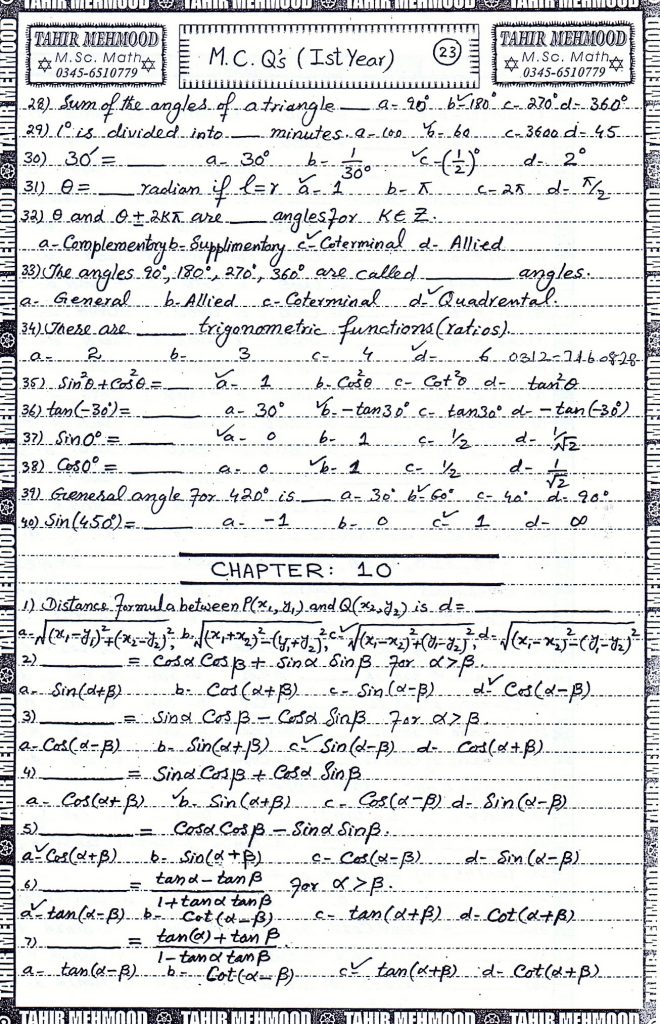 TAHIR MEHMOOD
M.Sc. Math
0345-6510779
M.C.Q's (Ist Year) 23
TAHIR MEHMOOD
M.Sc. Math
0345-6510779
28) Sum of the angles of a triangle ___ a- 90° b-✓180° c- 270° d- 360°
29) 1° is divided into ___ minutes. a- 100 ✓b- 60 c- 3600 d- 45
30) 30′ = ___ a- 30° b- 1/30° ✓c- (1/2)° d- 2°
31) θ = ___ radian if l=r ✓a- 1 b- π c- 2π d- π/2
32) θ and θ ± 2Kπ are ___ angles for K∈Z.
a- Complementory b- Supplimentory c-✓Coterminal d- Allied
33) The angles 90°, 180°, 270°, 360° are called ______ angles.
a- General b- Allied c- Coterminal d-✓Quadrental.
34) There are ___ trigonometric functions (ratios).
a- 2 b- 3 c- 4 ✓d- 6 0312-7460828
35) Sin²θ + Cos²θ = ___ ✓a- 1 b- Cos²θ c- Cot²θ d- tan²θ
36) tan(-30°) = ___ a- 30° ✓b- -tan30° c- tan30° d- -tan(-30°)
37) Sin0° = ___ ✓a- 0 b- 1 c- 1/2 d- 1/√2
38) Cos0° = ___ a- 0 ✓b- 1 c- 1/2 d- 1/√2
39) General angle for 420° is ___ a- 30° b-✓60° c- 40° d- 90°
40) Sin(450°) = ___ a- -1 b- 0 c-✓ 1 d- ∞
CHAPTER: 10
1) Distance formula between P(x₁, y₁) and Q(x₂, y₂) is d = ______
a- √(x₁-y₁)²+(x₂-y₂)², b- √(x₁+x₂)²-(y₁+y₂)², c-✓ √(x₁-x₂)²+(y₁-y₂)², d- √(x₁-x₂)²-(y₁-y₂)²
2) ______ = Cosα Cosβ + Sinα Sinβ for α>β.
a- Sin(α+β) b- Cos(α+β) c- Sin(α-β) d-✓ Cos(α-β)
3) ______ = Sinα Cosβ - Cosα Sinβ for α>β.
a- Cos(α-β) b- Sin(α+β) c-✓Sin(α-β) d- Cos(α+β)
4) ______ = Sinα Cosβ + Cosα Sinβ
a- Cos(α+β) ✓b- Sin(α+β) c- Cos(α-β) d- Sin(α-β)
5) ______ = Cosα Cosβ - Sinα Sinβ.
a-✓Cos(α+β) b- Sin(α+β) c- Cos(α-β) d- Sin(α-β)
6) ______ = tanα - tanβ / 1+tanα tanβ for α>β.
a-✓tan(α-β) b- Cot(α-β) c- tan(α+β) d- Cot(α+β)
7) ______ = tan(α) + tanβ / 1-tanα tanβ
a- tan(α-β) b- Cot(α-β) c-✓ tan(α+β) d- Cot(α+β)
TAHIR MEHMOOD TAHIR MEHMOOD TAHIR MEHMOOD TAHIR MEHMOOD